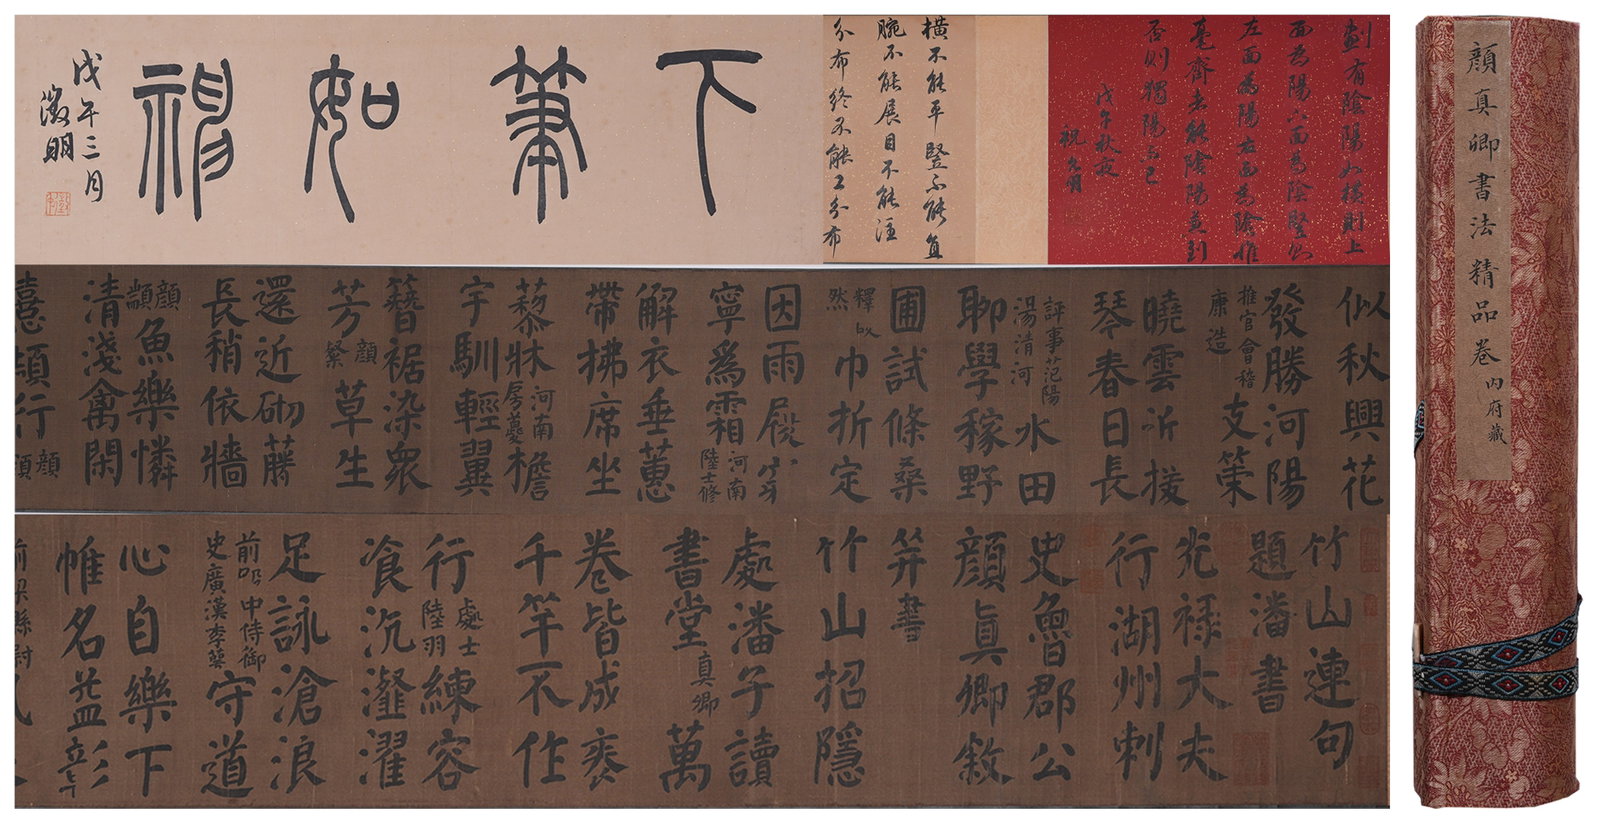 顔真卿書法精品卷 内府藏
劃有陰陽如橫則上
面為陽下面為陰竪則
左面為陽右面為陰惟
毫齊者能陰陽兼到
否則獨陽而已
戊午秋夜
祝允明
橫不能平竪不能直
腕不能展目不能注
分布終不能工分布
下筆如神
戊午三月
徵明
似秋興花
發勝河陽
推官會稽
康造
支策
曉雲近援
琴春日長
評事范陽
湯清河
水田
聊學稼野
圃試條桑
釋皎
然
巾折定
因雨屐以為
寧爲霜
河南
陸士修
解衣垂蕙
帶拂席坐
藜牀
河南
房夔
檐
宇馴輕翼
簪裾染衆
芳
顔
粲
草生
還近砌藤
長稍依牆
顔
顓
魚樂憐
清淺禽閑
憙頡行
顔
須
竹山連句
題潘書
光祿大夫
行湖州刺
史魯郡公
顔真卿敘
并書
竹山招隱
處潘子讀
書堂
真卿
萬
卷皆成袠
千竿不作
行
處士
陸羽
練容
飡沆瀣濯
足詠滄浪
前殿中侍御
史廣漢李蕚
守道
心自樂下
帷名益彰
前梁縣尉